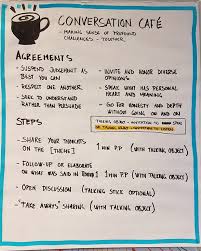 CONVERSATION CAFÉ
- MAKING SENSE OF PROFOUND
CHALLENGES - TOGETHER.
AGREEMENTS
- SUSPEND JUDGEMENT AS
BEST YOU CAN
- RESPECT ONE ANOTHER.
- SEEK TO UNDERSTAND
RATHER THAN PERSUADE
- INVITE AND HONOR DIVERSE
OPINIONS.
- SPEAK WHAT HAS PERSONAL
HEART AND MEANING
- GO FOR HONESTY AND DEPTH
WITHOUT GOING ON AND ON
TALKING OBJECT = INVITATION TO SPEAK
NO TALKING OBJECT = INVITATION TO LISTEN
STEPS
- SHARE YOUR THOUGHTS
ON THE [THEME] 1 MIN PP (WITH TALKING OBJECT)
- FOLLOW-UP OR ELABORATE
ON WHAT WAS SAID IN ROUND 1 1 MIN PP (WITH TALKING OBJECT)
- OPEN DISCUSSION (TALKING STICK OPTIONAL)
- "TAKE AWAYS" SHARING (WITH TALKING OBJECT)